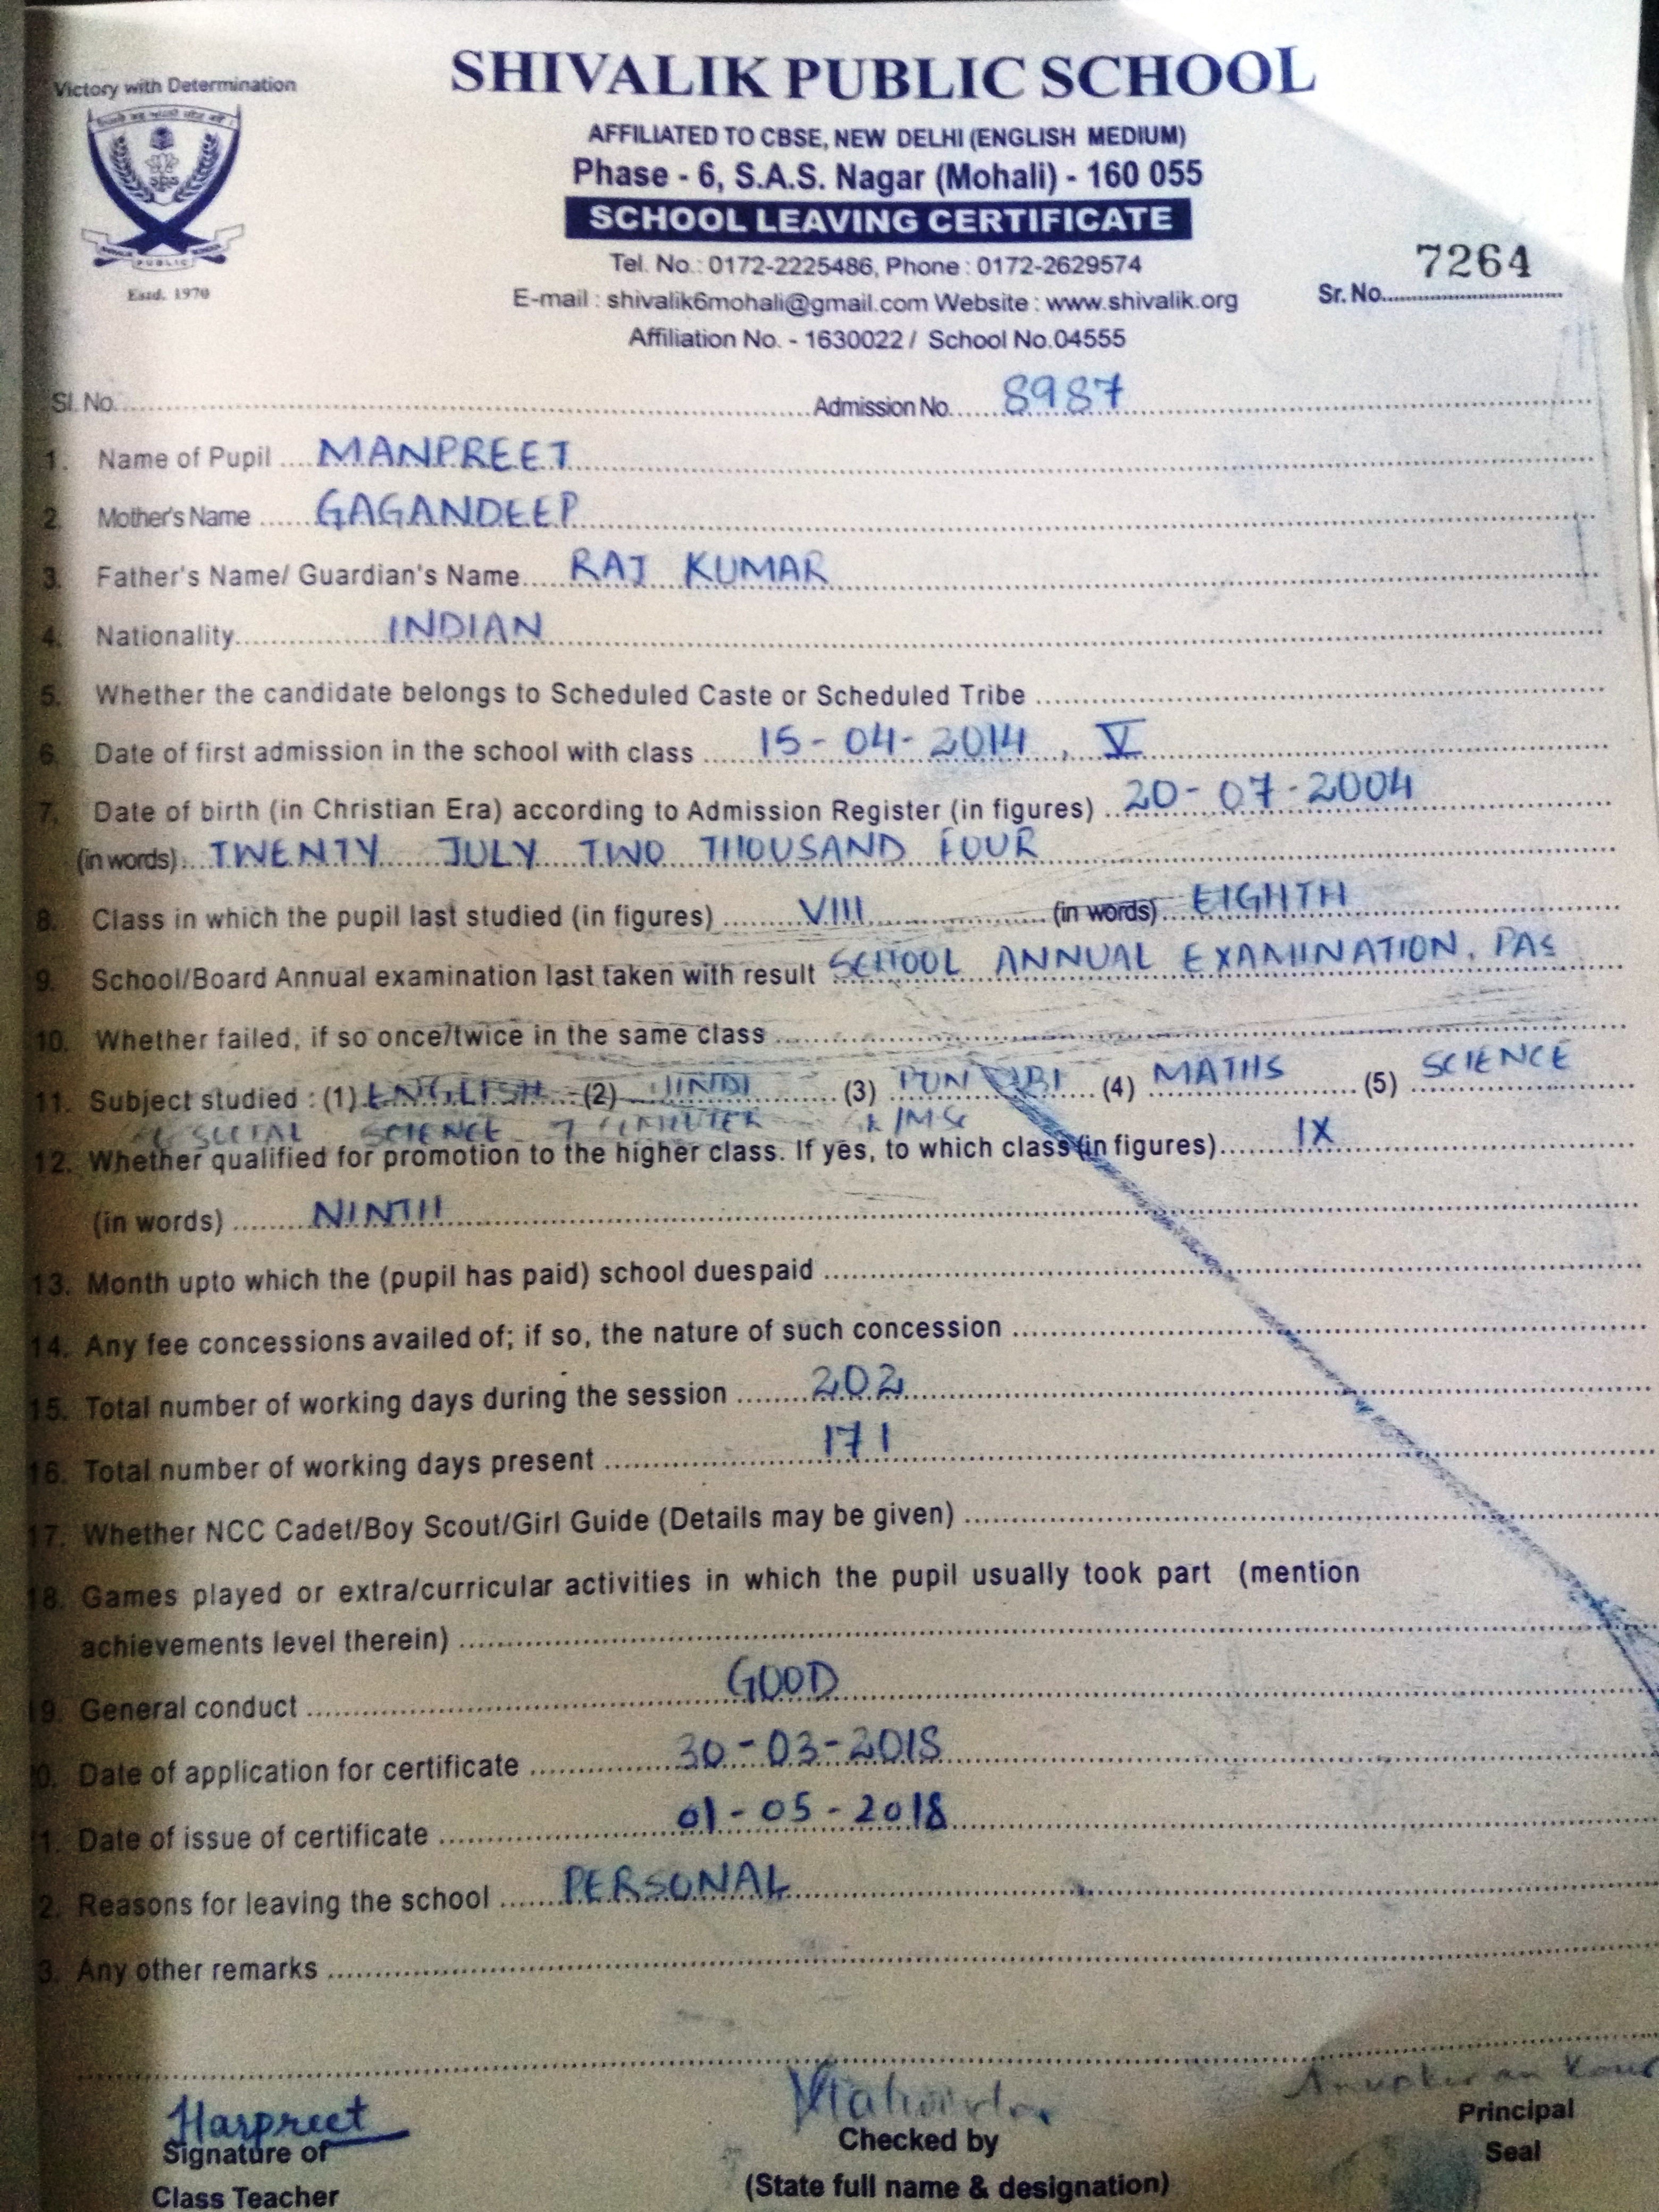 Victory with Determination
SHIVALIK PUBLIC SCHOOL
AFFILIATED TO CBSE, NEW DELHI (ENGLISH MEDIUM)
Phase - 6, S.A.S. Nagar (Mohali) - 160 055
SCHOOL LEAVING CERTIFICATE
Tel. No.: 0172-2225486, Phone : 0172-2629574
E-mail : shivalik6mohali@gmail.com Website : www.shivalik.org
Affiliation No. - 1630022 / School No.04555
PUBLIC
Estd. 1970
7264
Sr. No.
Sl. No. Admission No. 8987
1. Name of Pupil MANPREET
2. Mother's Name GAGANDEEP
3. Father's Name/ Guardian's Name RAJ KUMAR
4. Nationality INDIAN
5. Whether the candidate belongs to Scheduled Caste or Scheduled Tribe
6. Date of first admission in the school with class 15-04-2014, V
7. Date of birth (in Christian Era) according to Admission Register (in figures) 20-07-2004
(in words) TWENTY JULY TWO THOUSAND FOUR
8. Class in which the pupil last studied (in figures) VIII (in words) EIGHTH
9. School/Board Annual examination last taken with result SCHOOL ANNUAL EXAMINATION, PAS
10. Whether failed, if so once/twice in the same class
11. Subject studied : (1) ENGLISH (2) HINDI (3) PUNJABI (4) MATHS (5) SCIENCE
6 SOCIAL SCIENCE 7 COMPUTER
12. Whether qualified for promotion to the higher class. If yes, to which class (in figures) IX
(in words) NINTH
13. Month upto which the (pupil has paid) school duespaid
14. Any fee concessions availed of; if so, the nature of such concession
15. Total number of working days during the session 202
16. Total number of working days present 171
17. Whether NCC Cadet/Boy Scout/Girl Guide (Details may be given)
18. Games played or extra/curricular activities in which the pupil usually took part (mention
achievements level therein)
19. General conduct GOOD
0. Date of application for certificate 30-03-2018
1. Date of issue of certificate 01-05-2018
2. Reasons for leaving the school PERSONAL
3. Any other remarks
Harpreet
Signature of
Class Teacher
Checked by
(State full name & designation)
Principal
Seal